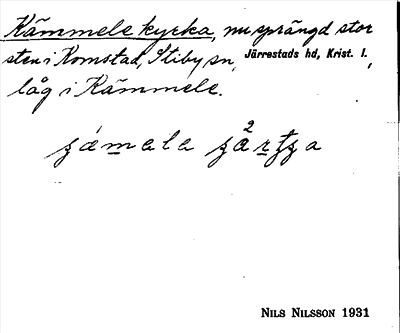 Kämmele kyrka, nu sprängd stor
sten i Komstad, Stiby sn, Järrestads hd, Krist. l.,
låg i Kämmele.
NILS NILSSON 1931